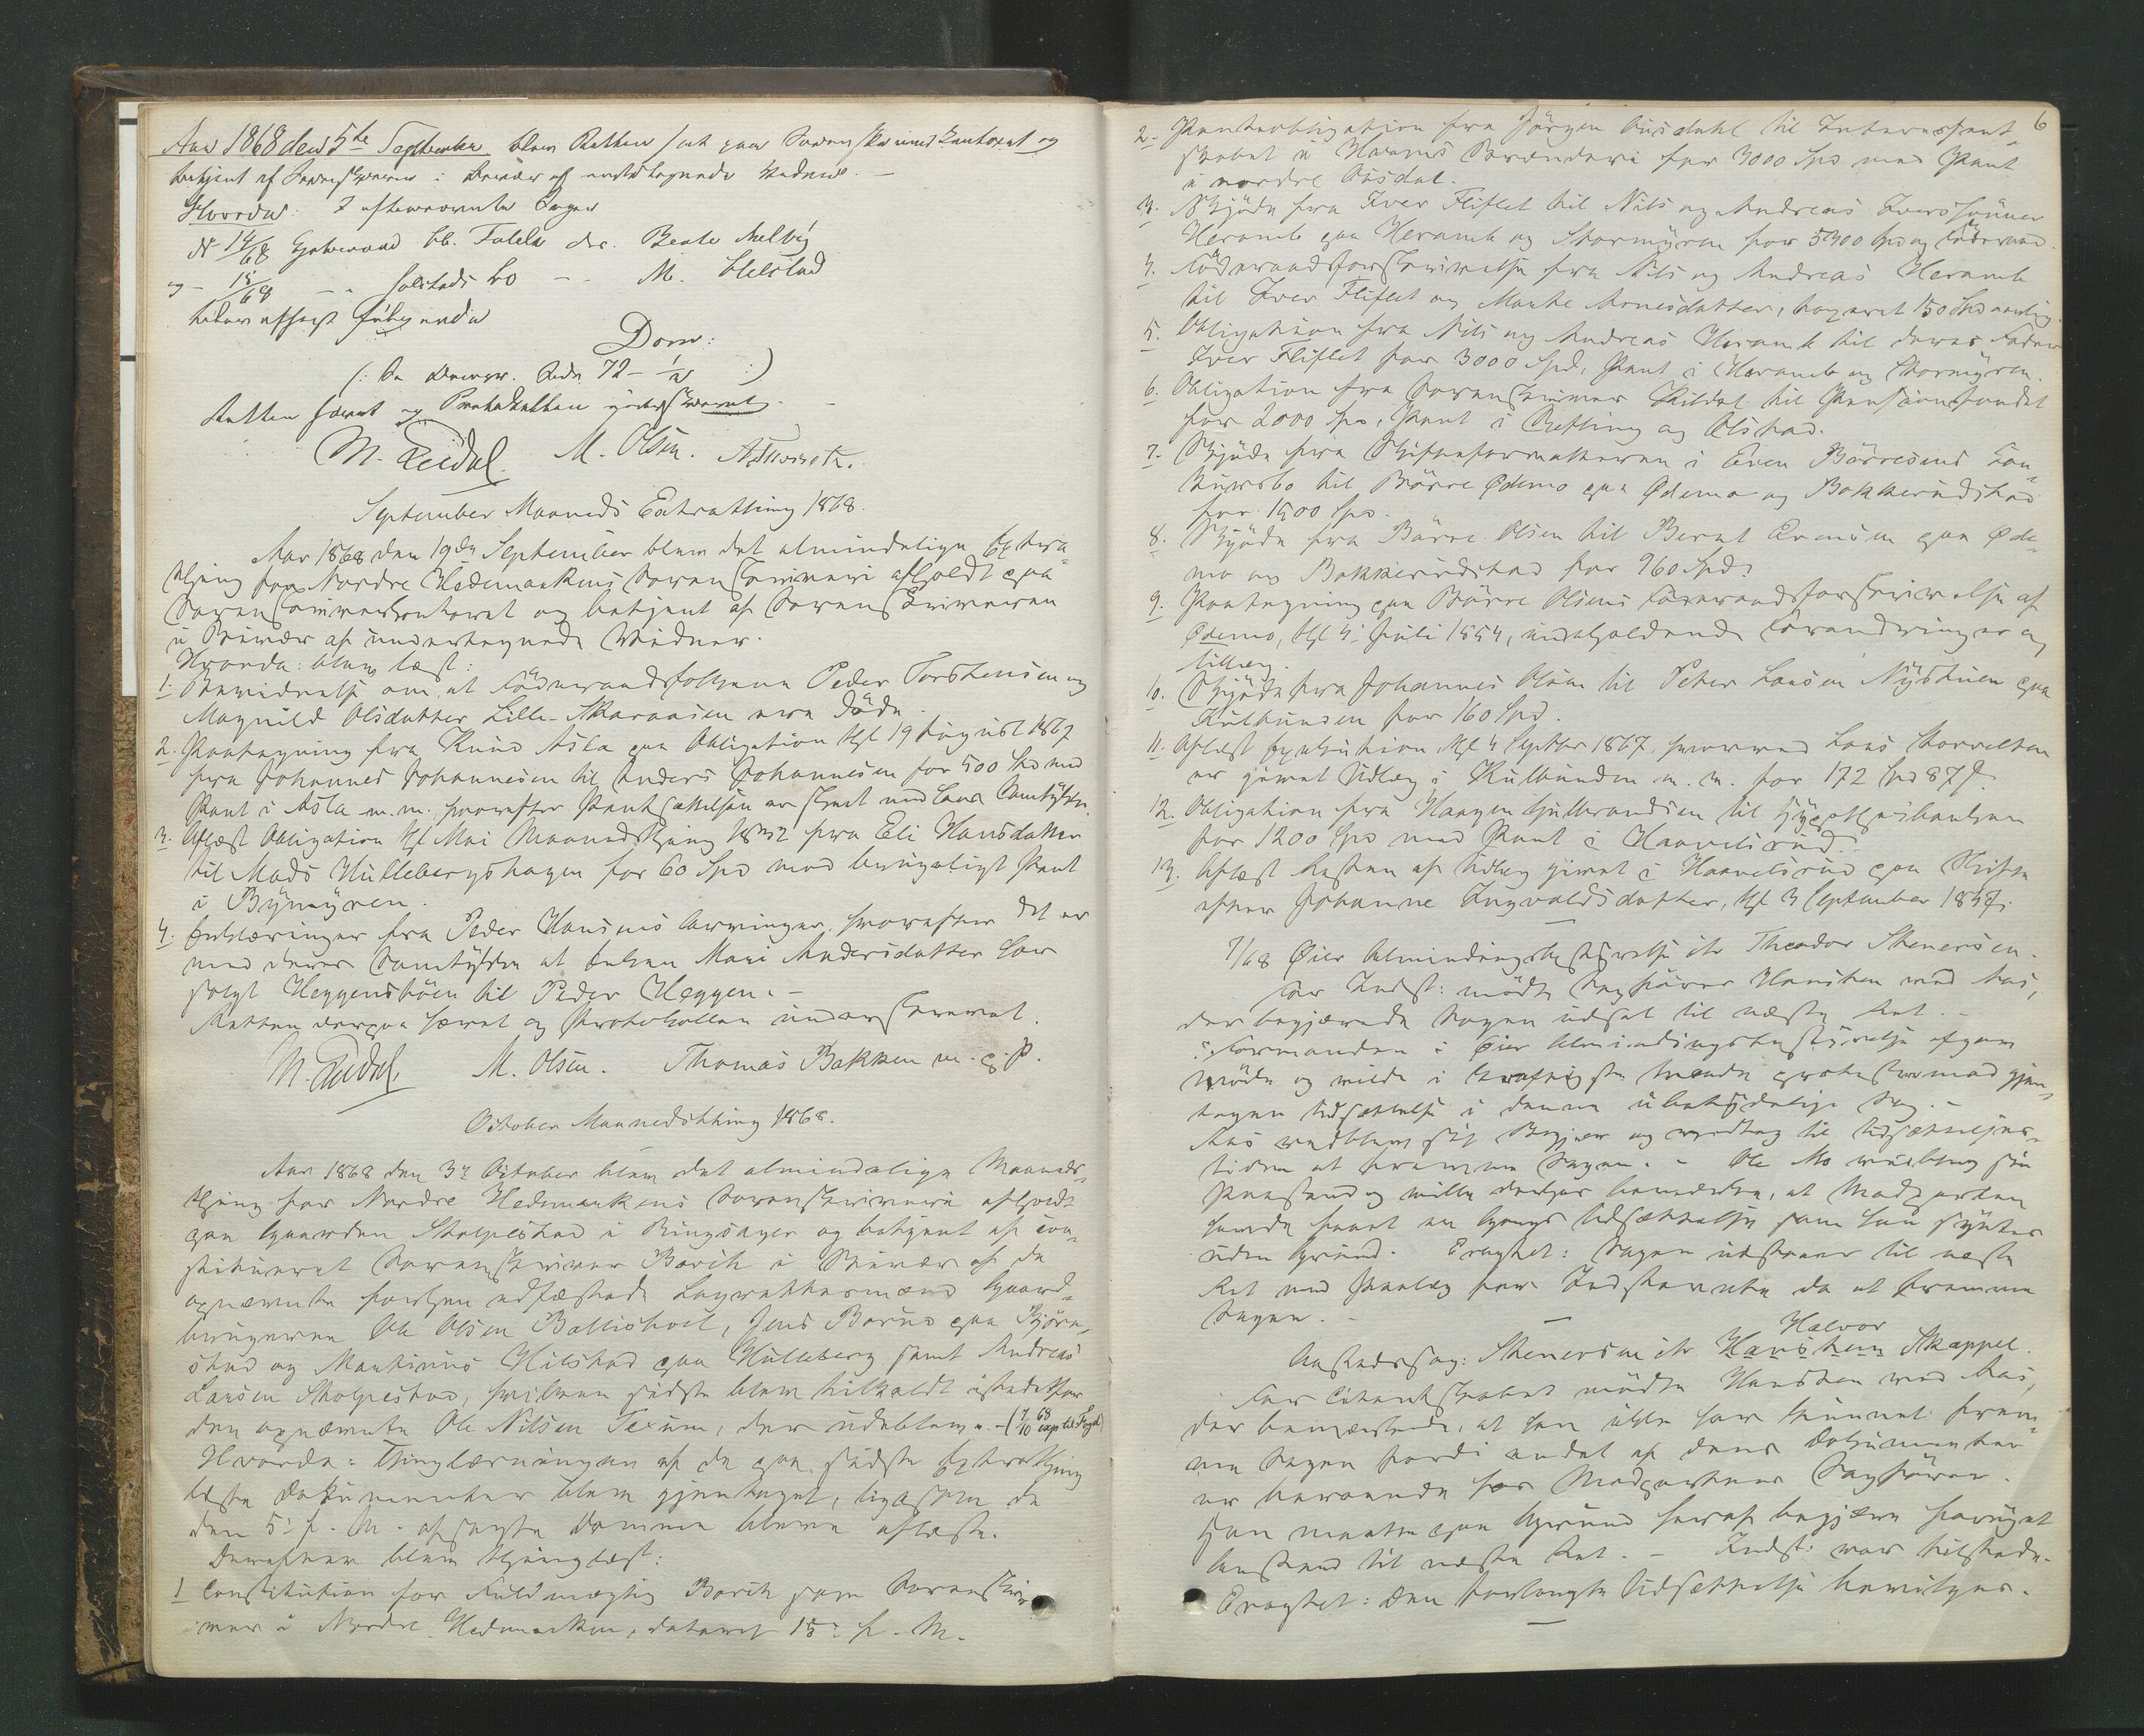 Aar 1868 den 5te September blev Retten sat paa Sorenskriverkontoret og
betjent af Sorenskriveren i Overvær af undertegnede Vidner. –
Hvorda: I efternævnte Sager
N 14/68 Gjetervand ctr. Beate Melbÿ
og – 15/68 – Solstads Bo – – M. Ulelstad
blev afsagt følgende
Dom:
(: Se Domspr. Side 72 – :)
Retten hævet og Protokollen underskrevet.
M. Olsen.
September Maaneds Extrathing 1868.
Aar 1868 den 19de September blev det almindelige Extra-
thing for Nordre Hedemarkens Sorenskriveri afholdt paa
Sorenskriverkontoret og betjent af Sorenskriveren
i Overvær af undertegnede Vidner.
Hvorda: blev læst:
1. Bevidnelse om, at Föderaadsfolkene Peder Torstensen og
Magnild Olsdatter Lille-Skaraasen ere döde.
2. Paategning fra Knud Asla paa Obligation thl 19 August 1867
fra Johannes Johannesen til Anders Johannesen for 500 Spd med
Pant i Asla m. m. hvorefter Pantsættelsen er skeet med hans Samtykke.
3. Aflæst Obligation thl Mai Maanedsthing 1832 fra Eli Hansdatter
til Mads Hullebergshagen for 60 Spd med bevægeligt Pant
i Bÿmÿren.
4. Erklæringer fra Peder Hansens Arvinger, hvorefter det er
med deres Samtykke at Enken Mari Andersdatter har
solgt Heggenshöen til Peder Heggen. –
Retten derpaa hævet og Protokollen underskrevet.
M. Olsen. Thomas Bakken m. p. P.
October Maanedsthing 1868.
Aar 1868 den 3die October blev det almindelige Maaneds-
thing for Nordre Hedemarkens Sorenskriveri afholdt
paa Gaarden Stolpestad i Ringsager og betjent af con-
stitueret Sorenskriver Borch i Overvær af de
opnævnte forhen edfæstede Laugrettesmænd Gaard-
brugerne Ole Olsen Ballishoel, Jens Borud paa Bjørn-
stad og Martinius Hilstad paa Hulleberg samt Andreas
Larsen Stolpestad, hvilken sidste blev tilkaldt istedetfor
den opnævnte Ole Nilsen Texum, der udeblev. – (7/10 68 exp til Fogd)
Hvorda: Thinglæsningen af de paa sidste Extrathing
læste Dokumenter blev gjentaget, ligesom de
den 5te f. M. afsagte Domme bleve oplæste.
Derefter blev thinglæst:
1 Constitution for Fuldmægtig Borch som Sorenskri-
ver i Nordre Hedemarken, dateret 15de f. M.
6
2. Panteobligation fra Jörgen Ausdahl til Interessent-
skabet i Hoavis Brænderi for 3000 Spd med Pant
i nordre Ausdal.
3. Skjöde fra Iver Fliflet til Nils og Andreas Iverssönner
Heramb paa Heramb og Stormÿren for 5300 Spd og Föderaad.
4. Föderaadsforskrivelse fra Nils og Andreas Heramb
til Iver Fliflet og Marthe Arnesdatter, taxeret 150 Spd aarlig.
5. Obligation fra Nils og Andreas Heramb til deres Fader
Iver Fliflet for 3000 Spd, Pant i Heramb og Stormÿren.
6. Obligation fra Sorenskriver til Pensionsfondet
for 2000 Spd, Pant i og Olstad.
7. Skjöde fra Skifteforvalteren i Even Börresens Con-
kursbo til Börre Ødemo paa Ødemo og Bakkerudstad
for 1900 Spd.
8. Skjöde fra Börre Olsen til Bernt Evensen paa Øde-
mo og Bakkerudstad for 960 Spd.
9. Paategning paa Börre Olsens Föderaadsforskrivelse af
Ødemo, thl 4de Juli 1854, indeholdende Forandringer og
Tillæg.
10. Skjöde fra Johannes Olsen til Peter Larsen Nÿstuen paa
Kulbunden for 160 Spd.
11. Aflæst Execution thl 4 Septbr 1867, hvorved hos
er gjort Udlæg i Kulbunden m. m. for 172 Spd 87 s.
12. Obligation fra Haagen Gulbrandsen til Hÿpothekbanken
for 1200 Spd med Pant i Haavelsrud.
13. Aflæst Resten af Udlæg gjort i Haavelsrud paa Skifte
efter Johanne Ingvaldsdatter, thl 3 September 1847.
7/68 Øier Almindingsbestÿrelse ctr Theodor Stenersen.
For Indst: mödte Sagförer Hansteen ved Aas,
der begjærede Sagen udsat til næste Ret. –
Formanden i Øier Almindingsbestÿrelse afgav
Möde og vilde i kraftigste Maade protestere mod gjen-
tagen Udsættelse i denne ubetÿdelige Sag. –
Aas vedblev sit Begjær og vedtog til Udsættelses-
tiden at fremme Sagen. – Ole Mo vedblev sin
Paastand og vilde derhos bemærke, at Modparten
havde faaet en Gangs Udsættelse som han sÿntes
uden Grund. Eragtet: Sagen udstaaer til næste
Ret med Paalæg for Indstævnte da at fremme
Sagen. –
Aastedssag: Stenersen ctr Hansteen Halvor Skappel.
For Citantskabet mödte Hansteen ved Aas,
der bemærkede, at han ikke har kunnet frem-
me Sagen fordi endel af dens Dokumenter
er beroende hos Modpartens Sagförer.
Han maatte paa Grund heraf begjære fornÿet
Anstand til næste Ret. – Indst: var tilstede.
Eragtet: Den forlangte Udsættelse bevilges.